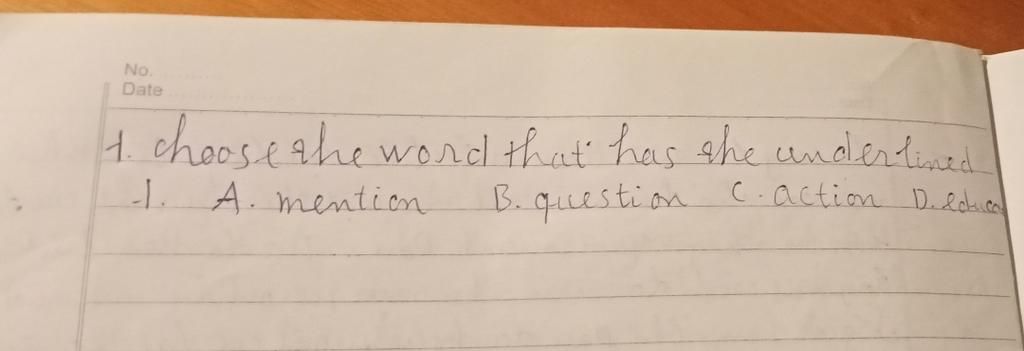 No.
Date
1. choose the word that has the underlined
1. A. mention B. question C. action D.